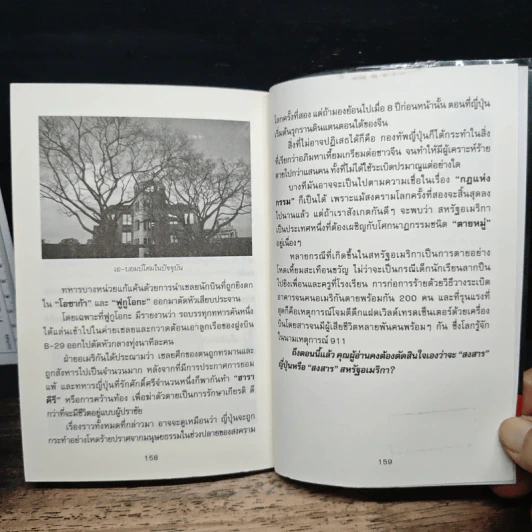 เอ-บอมบ์โดมในปัจจุบัน
ทหารบางหน่วยแก้แค้นด้วยการนำเชลยนักบินที่ถูกยิงตก
ใน "โอซาก้า" และ "ฟูกูโอกะ" ออกมาตัดหัวเสียบประจาน
โดยเฉพาะที่ฟูกูโอกะ มีรายงานว่า รถบรรทุกทหารคันหนึ่ง
ได้แล่นเข้าไปในค่ายเชลยและกวาดต้อนเอาลูกเรือของฝูงบิน
B-29 ออกไปตัดหัวกลางทุ่งนาทีละคน
ฝ่ายอเมริกันได้ประณามว่า เชลยศึกของตนถูกทรมานและ
ถูกสังหารไปเป็นจำนวนมาก หลังจากที่มีการประกาศการยอม
แพ้ และทหารญี่ปุ่นที่รักศักดิ์ศรีจำนวนหนึ่งก็พากันทำ "ฮารา
คีรี" หรือการคว้านท้อง เพื่อฆ่าตัวตายเป็นการรักษาเกียรติ ดี
กว่าที่จะมีชีวิตอยู่แบบผู้ปราชัย
เรื่องราวทั้งหมดที่กล่าวมา อาจจะดูเหมือนว่า ญี่ปุ่นจะถูก
กระทำอย่างโหดร้ายปราศจากมนุษยธรรมในช่วงปลายของสงคราม
158
โลกครั้งที่สอง แต่ถ้ามองย้อนไปเมื่อ 8 ปีก่อนหน้านั้น ตอนที่ญี่ปุ่น
เริ่มต้นรุกรานดินแดนตอนใต้ของจีน
สิ่งที่ไม่อาจปฏิเสธได้ก็คือ กองทัพญี่ปุ่นก็ได้กระทำในสิ่ง
ที่เรียกว่าอภิมหาเหี้ยมเกรียมต่อชาวจีน จนทำให้มีผู้เคราะห์ร้าย
ตายไปกว่าแสนคน ทั้งที่ไม่ได้ใช้ระเบิดปรมาณูแต่อย่างใด
บางทีมันอาจจะเป็นไปตามความเชื่อในเรื่อง "กฎแห่ง
กรรม" ก็เป็นได้ เพราะแม้สงครามโลกครั้งที่สองจะสิ้นสุดลง
ไปนานแล้ว แต่ถ้าเราสังเกตกันดีๆ จะพบว่า สหรัฐอเมริกา
เป็นประเทศหนึ่งที่ต้องเผชิญกับโศกนาฏกรรมชนิด "ตายหมู่"
อยู่เนืองๆ
หลายกรณีที่เกิดขึ้นในสหรัฐอเมริกาเป็นการตายอย่าง
โหดเหี้ยมสะเทือนขวัญ ไม่ว่าจะเป็นกรณีเด็กนักเรียนลากปืน
ไปยิงเพื่อนและครูที่โรงเรียน การก่อการร้ายด้วยวิธีวางระเบิด
อาคารจนคนอเมริกันตายพร้อมกัน 200 คน และที่รุนแรงที่
สุดก็คือเหตุการณ์โจมตีตึกแฝดเวิลด์เทรดเซ็นเตอร์ด้วยเครื่อง
บินโดยสารจนมีผู้เสียชีวิตหลายพันคนพร้อมๆ กัน ซึ่งโลกรู้จัก
ในนามเหตุการณ์ 911
ถึงตอนนี้แล้ว คุณผู้อ่านคงต้องตัดสินใจเองว่าจะ "สงสาร"
ญี่ปุ่นหรือ "สงสาร" สหรัฐอเมริกา?
159